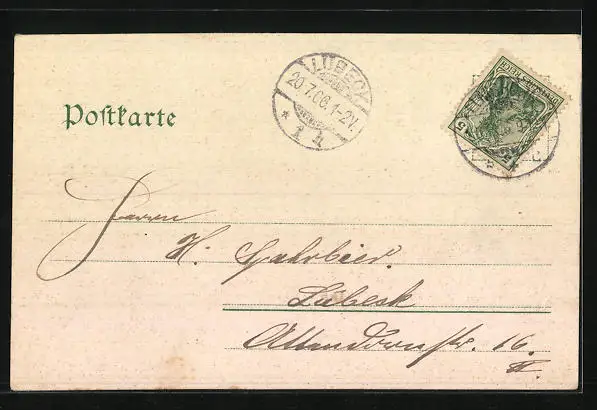 Postkarte
LÜBECK
20.7.06.1-2V.
* 1 h
DEUTSCHES REICH
5
Herrn
H. Gahrbier.
Lübeck
Attendornstr. 16.
II.